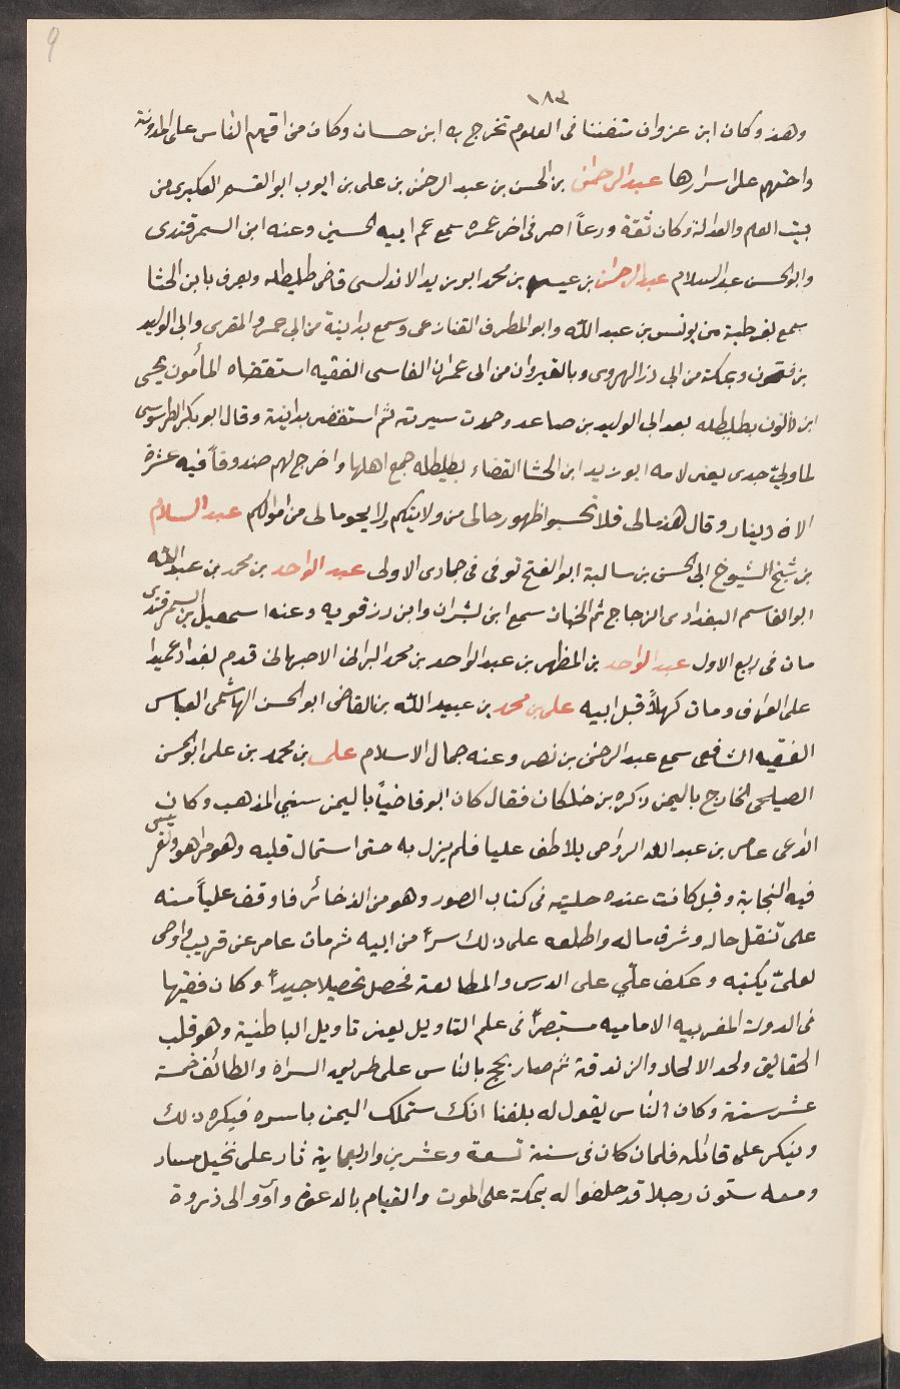 9
١٨٣
وهذ وكان ابن عزوان متفننا فى العلوم تخرج به ابن حسان وكان من اقيم الناس على المدونة
واختهم على اسرارها عبد الرحمن بن الحسن بن عبد الرحمن بن على بن ايوب ابو القسم العكبرى من
بيت العلم والعدالة وكان ثقة ورعاً اصر فى اخر عمره سمع عم ابيه الحسين وعنه ابن السمرقندى
وابو الحسن عبد السلام عبد الرحمن بن عيسى بن محمد ابو زيد الاندلسى قاضى طليطله ويعرف بابن الحشا
سمع بقرطبة من يونس بن عبد الله وابو المطرف القنازعى وسمع بدانية من ابى عمرو المقرى وابى الوليد
بن فتحون وبمكة من ابى ذر الهروى وبالقيروان من ابى عمران الفاسى الفقيه استقضاه المأمون يحيى
ابن ذالنون بطليطله بعد ابى الوليد بن صاعد وحمدت سيرته ثم استقضى بدانية وقال ابو بكر الطرسوسى
لما ولى جدى يعنى لامه ابو زيد ابن الحشا القضاء بطليطله جمع اهلها واخرج لهم صندوقاً فيه عشرة
الاف دينار وقال هذا مالى فلا تحسبوا ظهور حالى من ولايتكم ولا يحو مالى من اموالكم عبد السلام
بن شيخ الشيوخ ابى الحسن بن سالبة ابو الفتح توفى فى جمادى الاولى عبد الواحد بن محمد بن عبد الله
ابو القاسم البغدادى الزجاج ثم الخباز سمع ابن بشران وابن رزقويه وعنه اسمعيل بن السمرقندى
مات فى ربيع الاول عبد الواحد بن المطهر بن عبد الواحد بن محمد البزانى الاصبهانى قدم بغداد عميدا
على العراق ومات كهلاً قبل ابيه على بن محمد بن عبيد الله بن القاضى ابو الحسن الهاشمى العباسى
الفقيه الشافعى سمع عبد الرحمن بن نصر وعنه جمال الاسلام على بن محمد بن على ابو الحسن
الصيلحى الخارج باليمن ذكره بن خلكان فقال كان ابو قاضياً باليمن سنى المذهب وكان
الداعى عامر بن عبد الله الرواحى يلاطف عليا فلم يزل به حتى استمال قلبه وهو مراهق وتفرس
فيه النجابة وقيل كانت عنده حليته فى كتاب الصور وهو من الذخائر فاوقف علياً منه
على تنقل حاله وشرف ماله واطلعه على ذلك سراً من ابيه ثم مات عامر عن قريب واوصى
لعلىّ بكتبه وعكف علّى على الدرس والمطالعة فحصل تحصيلا جيداً وكان فقيها
فى الدولة المغربيه الاماميه مستبصراً فى علم التاويل يعنى تاويل الباطنية وهو قلب
الحقايق ولحد الالحاد والزندقة ثم صار يحج بالناس على طريق السراة والطائف خمسة
عشر سنة وكان الناس يقول له بلغنا انك ستملك اليمن باسره فيكره ذلك
وينكر على قائله فلمان كان فى سنة تسعة وعشرين واربعماية ثار على نخيل مسار
ومعه ستون رجلا قد حلفوا له بمكة على الموت والقيام بالدعوة وآوو الى ذروة